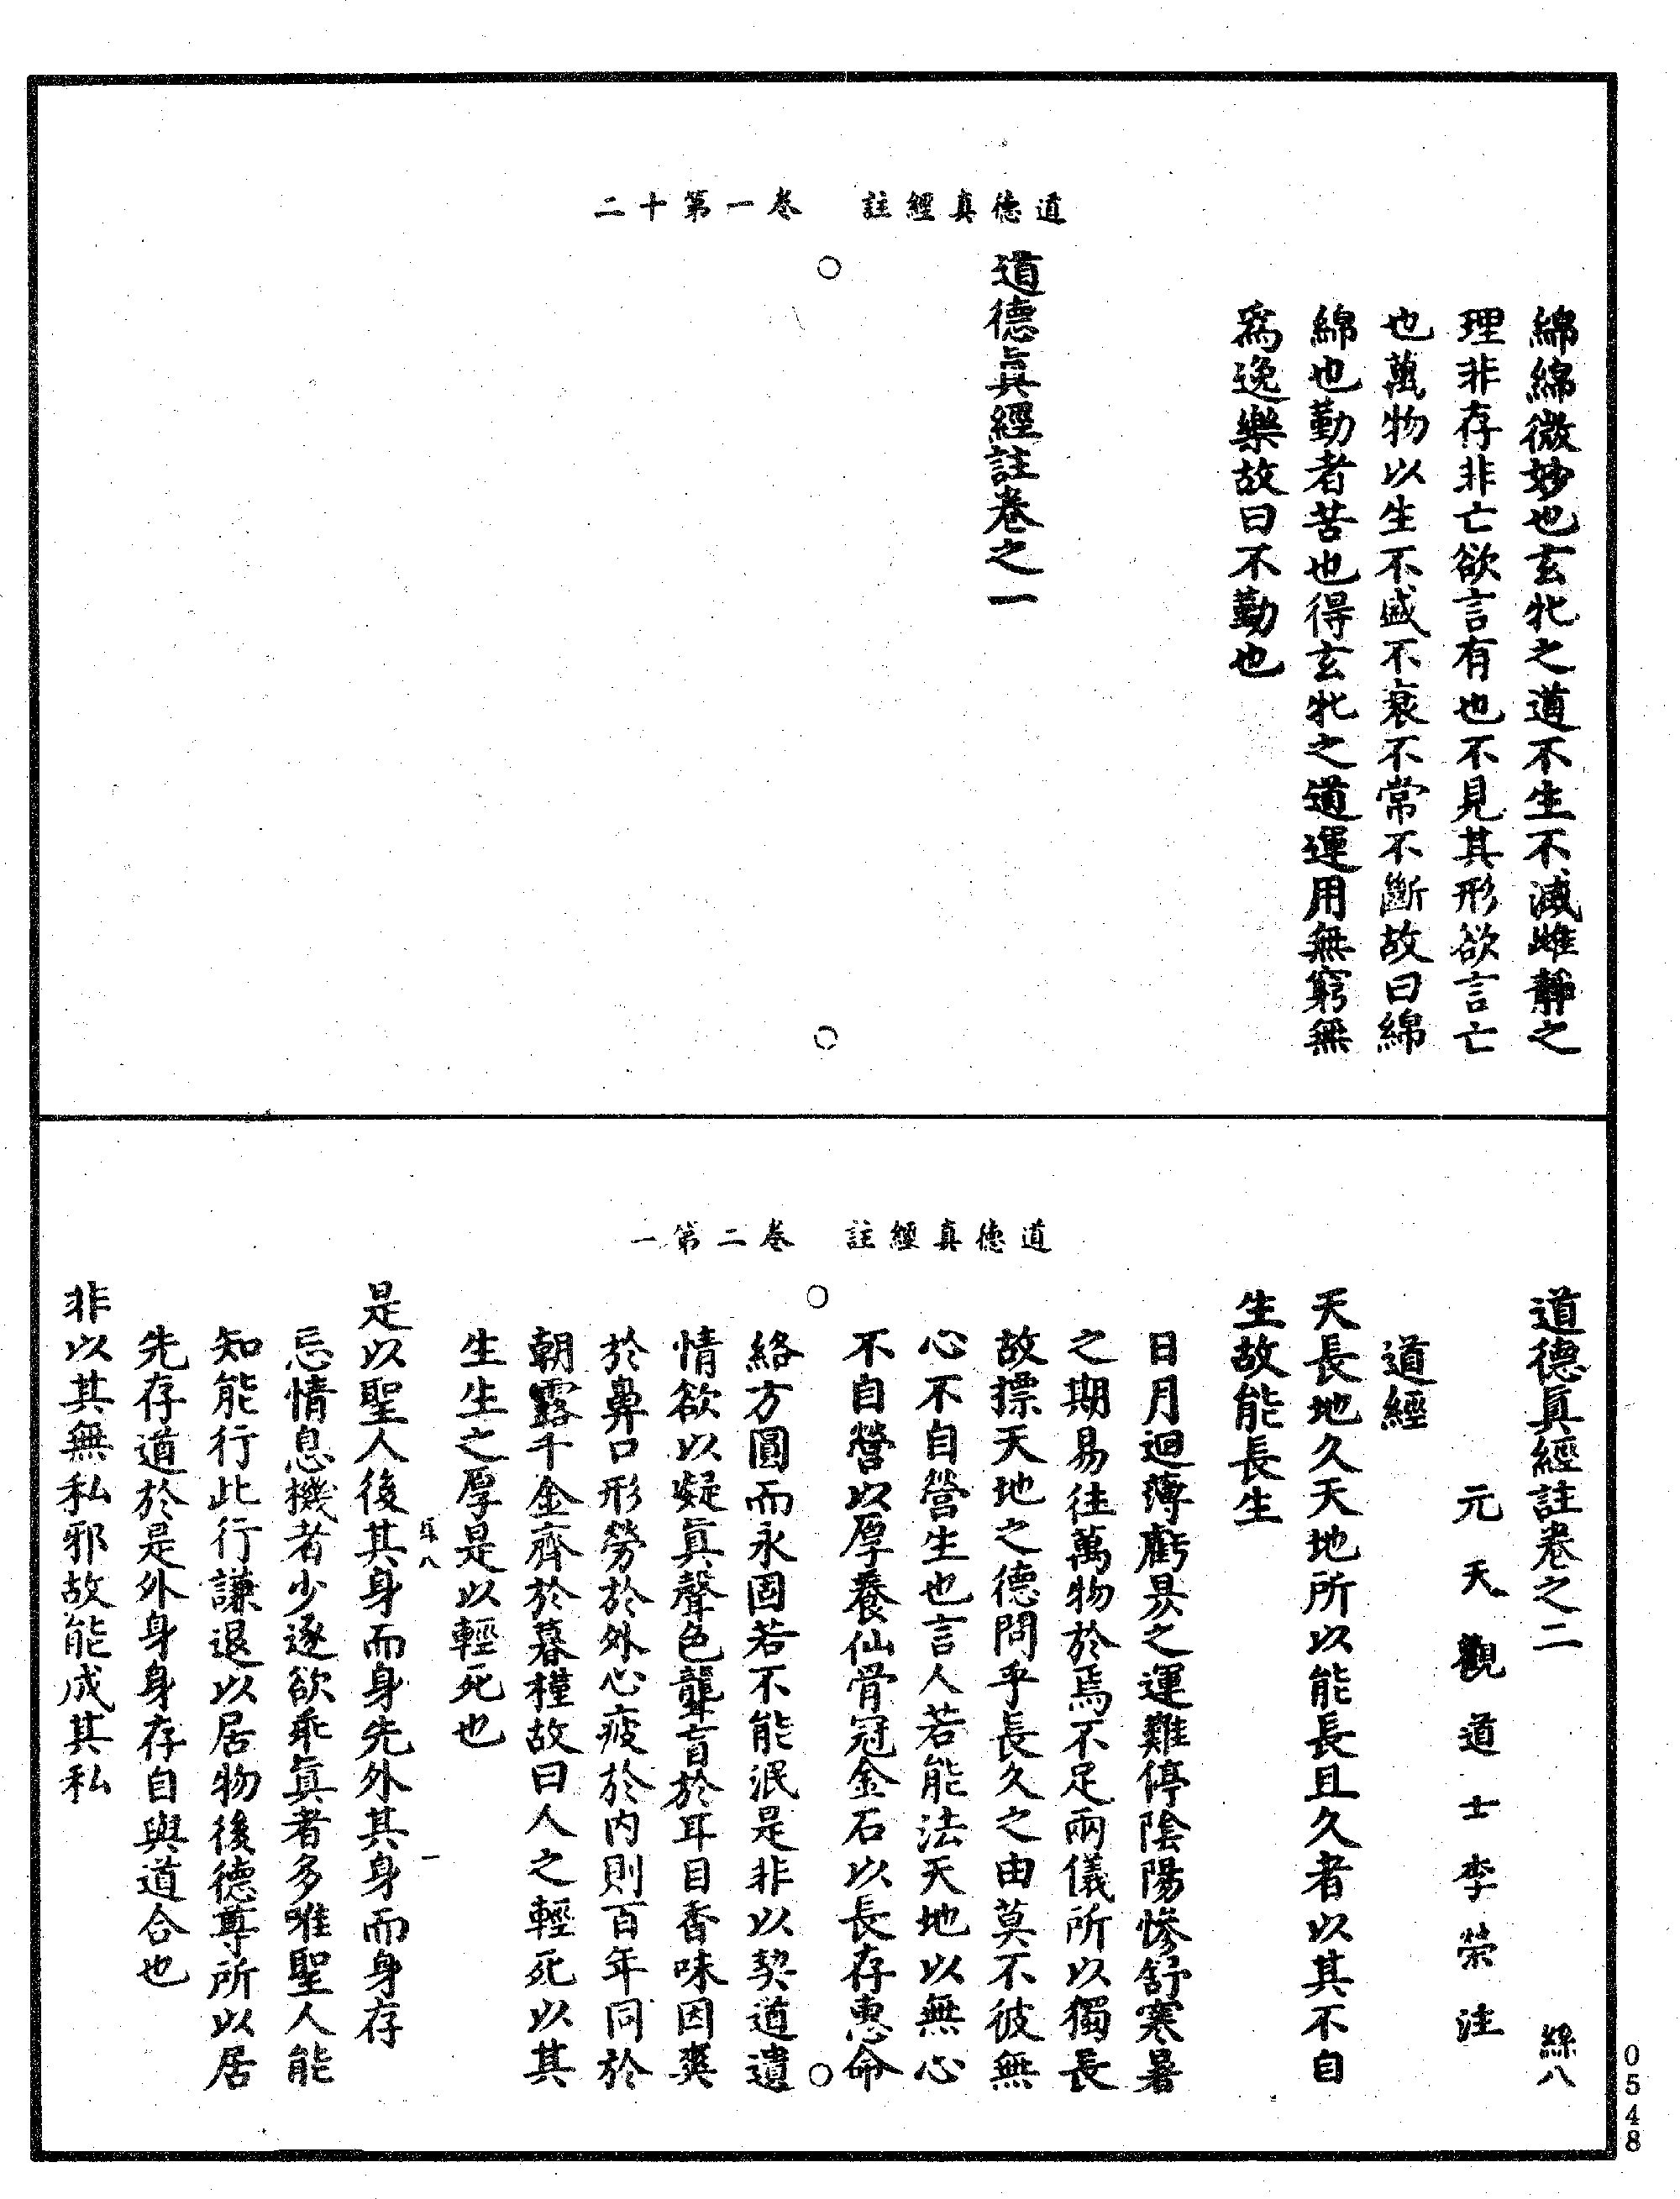 道德真經註　卷一第十二
綿綿微妙也玄牝之道不生不滅雌靜之
理非存非亡欲言有也不見其形欲言亡
也萬物以生不盛不衰不常不斷故曰綿
綿也勤者苦也得玄牝之道運用無窮無
爲逸樂故曰不勤也
道德眞經註卷之一
道德真經註　卷二第一
道德眞經註卷之二　絲八
元天觀道士李榮注
道經
天長地久天地所以能長且久者以其不自
生故能長生
日月迴薄虧昃之運難停陰陽慘舒寒暑
之期易往萬物於焉不足兩儀所以獨長
故摽天地之德問乎長久之由莫不彼無
心不自營生也言人若能法天地以無心
不自營以厚養仙骨冠金石以長存惠命
絡方圓而永固若不能泯是非以契道遺
情欲以凝眞聲色聾盲於耳目香味因爽
於鼻口形勞於外心疲於内則百年同於
朝露千金齊於暮槿故曰人之輕死以其
生生之厚是以輕死也
是以聖人後其身而身先外其身而身存
忘情息機者少逐欲乖眞者多唯聖人能
知能行此行謙退以居物後德尊所以居
先存道於是外身身存自與道合也
非以其無私邪故能成其私
0548